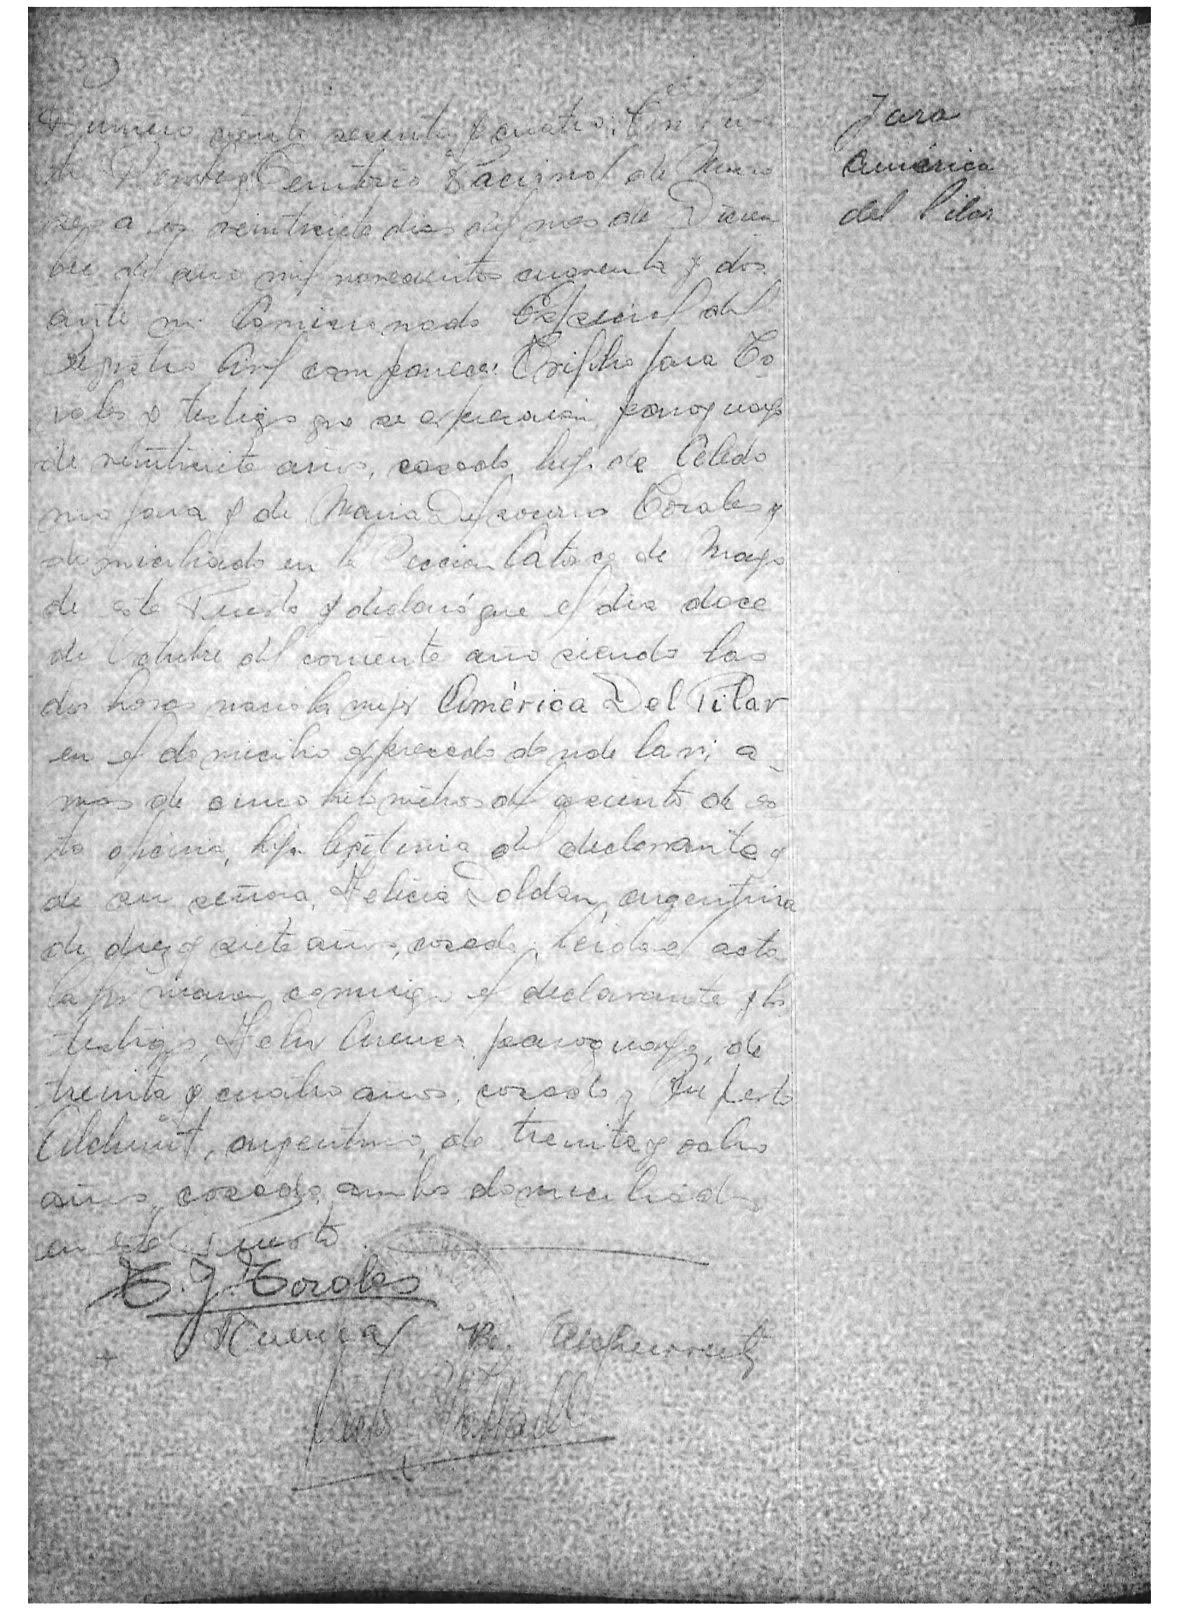 Jara
América
del Pilar
Numero ciento sesenta y cuatro: En Puer-
to Territorio Nacional de Misio
nes a los veintisiete dias del mes de Diciem
bre del año mil novecientos cuarenta y dos
ante mi Comisionado Especial del
Registro Civil comparece: Jara To
rales y testigos que se expresarán, paraguayo
de veintisiete años, casado, hijo de Celedo
nio Jara y de Maria Torales y
domiciliado en la Seccion Catorce de Mayo
de este Puerto y declaró que el dia doce
de Octubre del corriente año siendo las
dos horas nacio la mujer América Del Pilar
en el domicilio expresado donde la vi, a
mas de cinco kilometros del asiento de es
ta oficina, hija legitima del declarante y
de su señora, Felicia Doldan, argentina
de diez y siete años, casada; leida el acta
la firmaron conmigo el declarante y los
testigos, Felix Cuenca, paraguayo, de
treinta y cuatro años, casado y Ruperto
argentino, de treinta y ocho
años, casado, ambos domiciliados
en este Puerto.
T. J. Torales
Cuenca R.